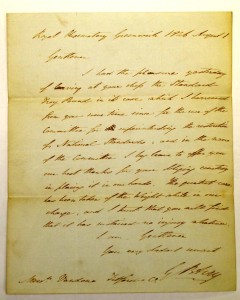 Royal Observatory Greenwich 1846 August 1
Gentlemen
I had the pleasure yesterday
of leaving at your shop the Standard
Troy Pound in its case which I borrowed
from you some time since, for the use of the
Committee for superintending the construction
of National Standards, and in the name
of the Committee I beg leave to offer you
our best thanks for your obliging courtesy
in placing it in our hands. The greatest care
has been taken of the Weight while in our
charge, and I trust that you will find
that it has suffered no injury whatever
I am, Gentlemen
Your very obedient servant
G. B. Airy
Mess<sup>rs</sup> Vandome & Co.